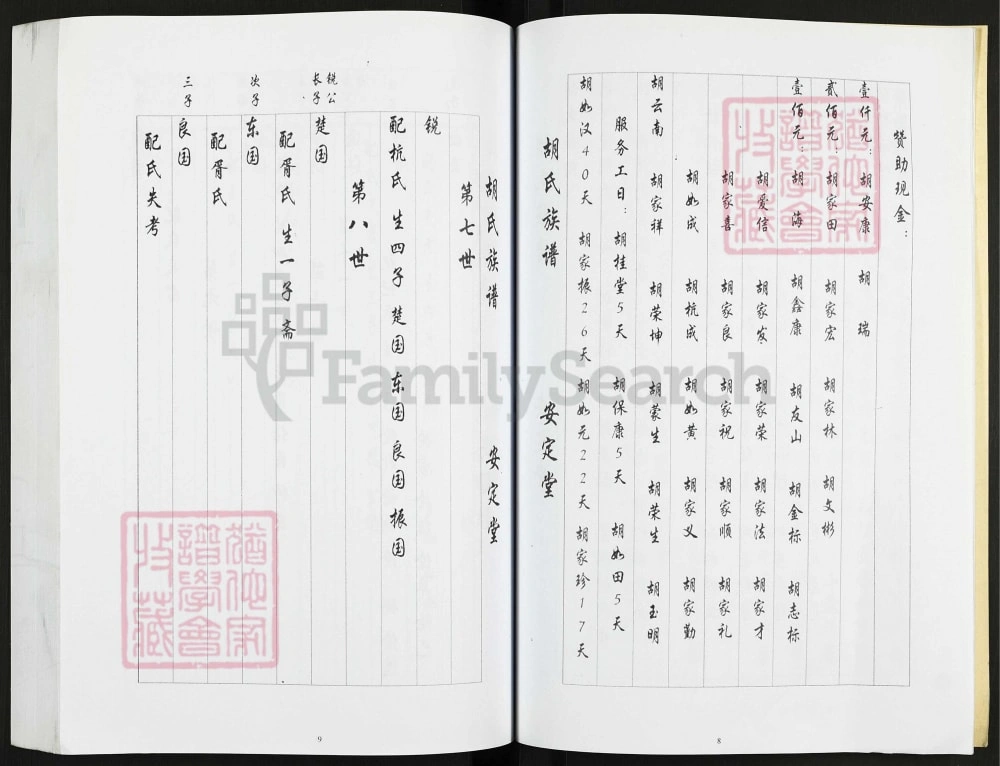 赞助现金：
壹仟元：胡安康 胡瑞
贰佰元：胡家田 胡家宏 胡家林 胡文彬
壹佰元：胡海 胡鑫康 胡友山 胡金标 胡志标
胡爱信 胡家发 胡家荣 胡家法 胡家才
胡家喜 胡家良 胡家祝 胡家顺 胡家礼
胡如成 胡杭成 胡如黄 胡家义 胡家勤
胡云南 胡家祥 胡荣坤 胡蒙生 胡荣生 胡玉明
服务工日：胡桂堂5天 胡保康5天 胡如田5天
胡如汉40天 胡家振26天 胡如元22天 胡家珍17天
胡氏族谱 安定堂
8
胡氏族谱 安定堂
第七世
锐
配杭氏 生四子 楚国 东国 良国 振国
第八世
锐公
长子
楚国
配胥氏 生一子 斋
次子
东国
配胥氏
三子
良国
配氏失考
9
FamilySearch
猶他家
譜學會
收藏
猶他家
譜學會
收藏